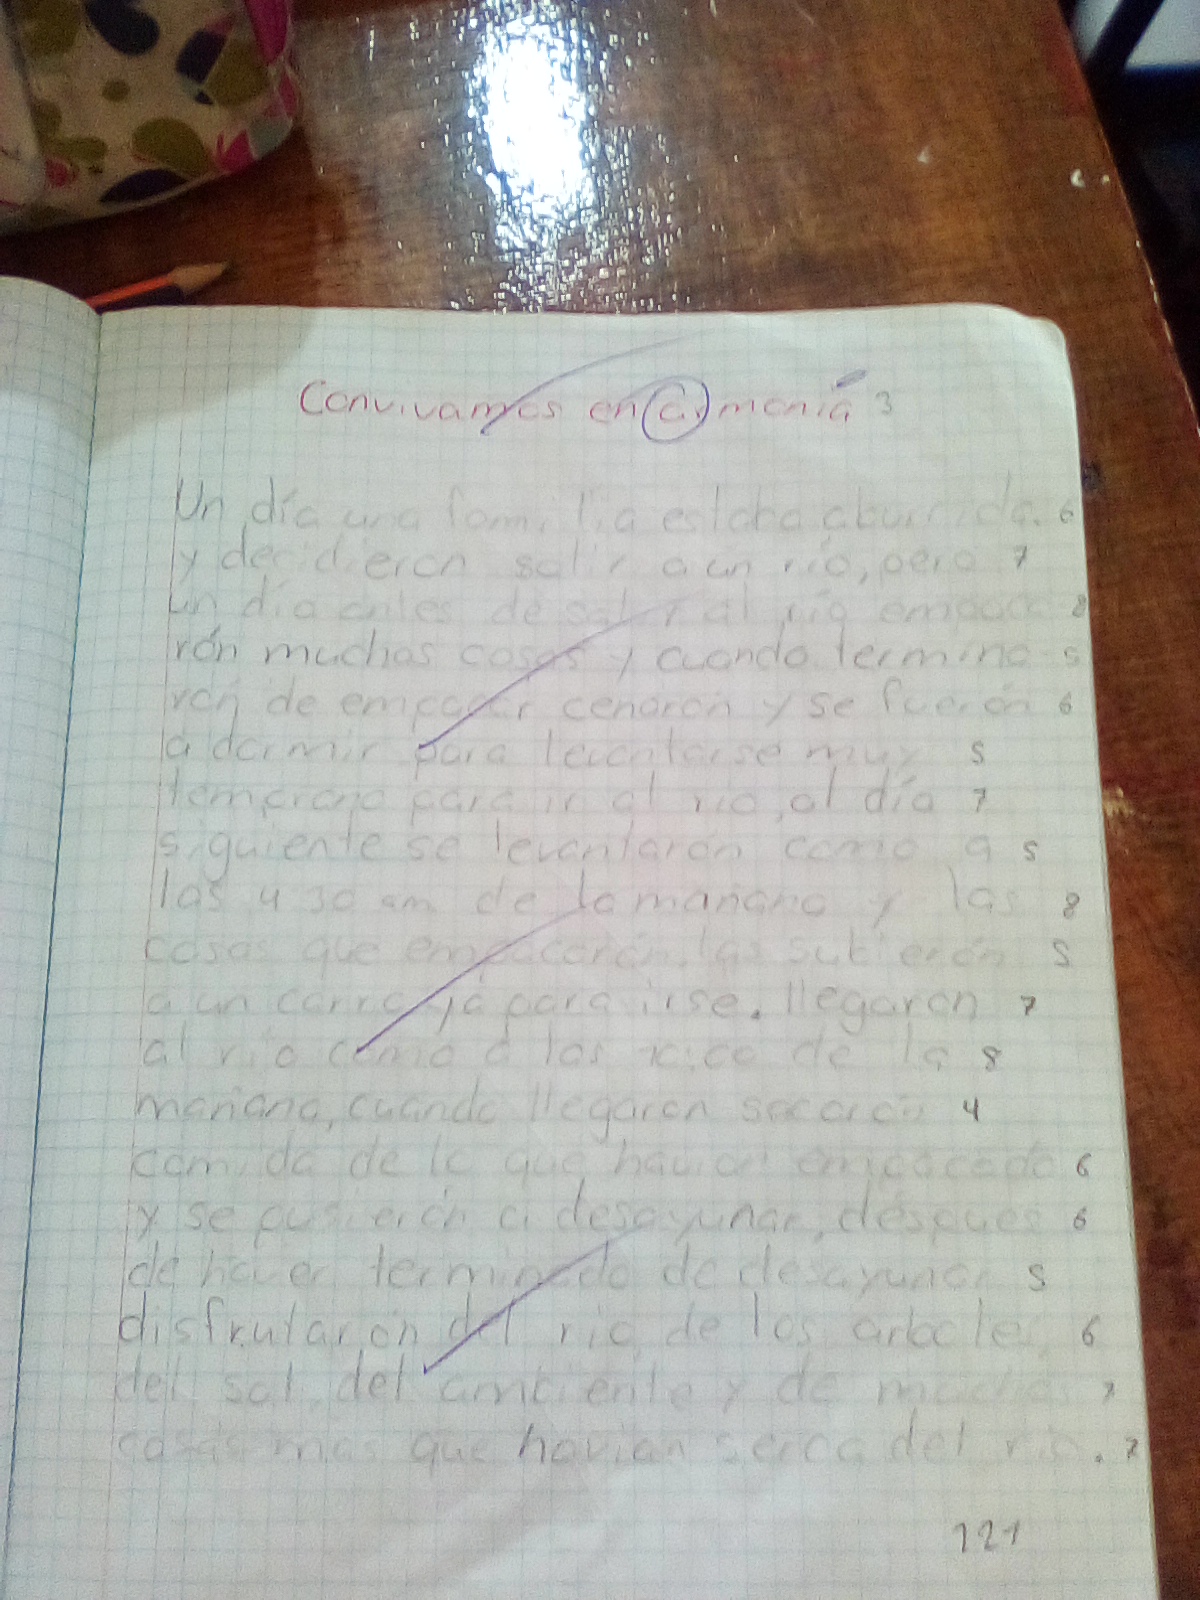 Convivamos en armonía 3
Un día una familia estaba aburrida. 6
y decidieron salir a un río, pero 7
un día antes de salir al río empaca 8
rón muchas cosas y cuando termina 5
ron de empacar cenaron y se fuerón 6
a dormir para levantarse muy 5
temprano para ir al río, al día 7
siguiente se levantarón como a 5
las 4 30 am de la mañana y las 8
cosas que empacarón, las subierón 5
a un carro ya para irse. llegaron 7
al río como a las de la 8
mañana, cuando llegaron sacarón 4
comida de lo que havian empacado 6
y se pusierón a desayunar, déspues 6
de haver terminado de desayunar 5
disfrutarón del río, de los arboles, 6
del sol, del ambiente y de muchas 7
cosas mas que havian serca del río. 7
121